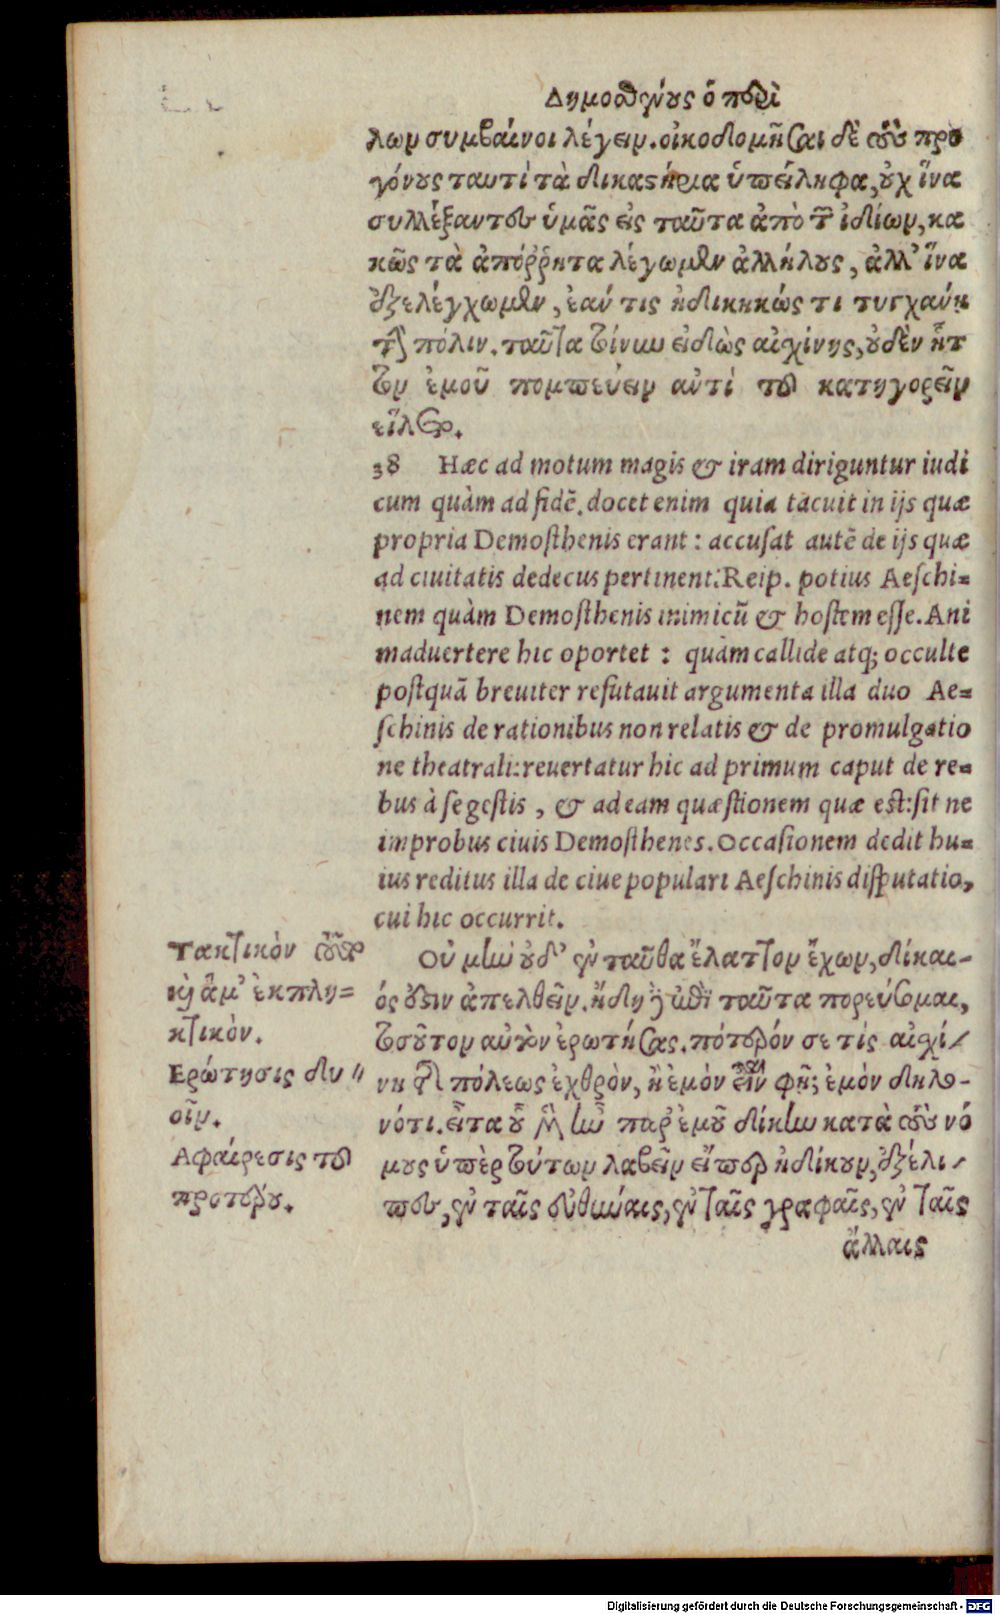 Δημοσθένους ὁ περὶ
λων συμβαίνοι λέγειν. οἰκοδομῆσαι δὲ τοὺς προ
γόνους ταυτὶ τὰ δικαστήρια ὑπείληφα, οὐχ ἵνα
συλλέξαντες ὑμᾶς εἰς ταῦτα ἀπὸ τῶν ἰδίων, κα
κῶς τὰ ἀπόῤῥητα λέγωμεν ἀλλήλους, ἀλλ' ἵνα
ἐξελέγχωμεν, ἐάν τις ἠδικηκώς τι τυγχάνῃ
τὴν πόλιν. ταῦτα τοίνυν εἰδὼς αἰσχίνης, οὐδὲν ἧτ
τον ἐμοῦ πομπεύειν ἀντὶ τοῦ κατηγορεῖν
εἵλετο.
38 Hæc ad motum magis & iram diriguntur iudi
cum quàm ad fidē. docet enim quia tacuit in ijs quæ
propria Demosthenis erant : accusat autē de ijs quæ
ad ciuitatis dedecus pertinent: Reip. potius Aeschi=
nem quàm Demosthenis inimicū & hostem esse. Ani
maduertere hic oportet : quàm callide atq; occulte
postquā breuiter refutauit argumenta illa duo Ae=
schinis de rationibus non relatis & de promulgatio
ne theatrali: reuertatur hic ad primum caput de re=
bus à se gestis , & ad eam quæstionem quæ est: sit ne
improbus ciuis Demosthenes. Occasionem dedit hu=
ius reditus illa de ciue populari Aeschinis disputatio,
cui hic occurrit.
Οὐ μὴν οὐδ' ἐνταῦθα ἔλατἼον ἔχων, δίκαι-
ός ἐστιν ἀπελθεῖν. ἤδη δ' ἐπὶ ταῦτα πορεύσομαι,
τοσοῦτον αὐτὸν ἐρωτήσας. πότερόν σε τίς αἰσχί-
νη τῆς πόλεως ἐχθρὸν, ἢ ἐμὸν εἶναι φῇ; ἐμὸν δηλο-
νότι. εἶτα οὗ μὲν ἦν παρ' ἐμοῦ δίκην κατὰ τοὺς νό
μους ὑπὲρ τούτων λαβεῖν εἴπερ ἠδίκουν, ἐξέλι-
πες, ἐν ταῖς εὐθύναις, ἐν ταῖς γραφαῖς, ἐν ταῖς
ἄλλαις
Τακτικὸν
καὶ ἅμ' ἐκπλη=
κτικὸν.
Ερώτησις δυ"
οῖν.
Αφαίρεσις τοῦ
προτέρου.
Digitalisierung gefördert durch die Deutsche Forschungsgemeinschaft - DFG